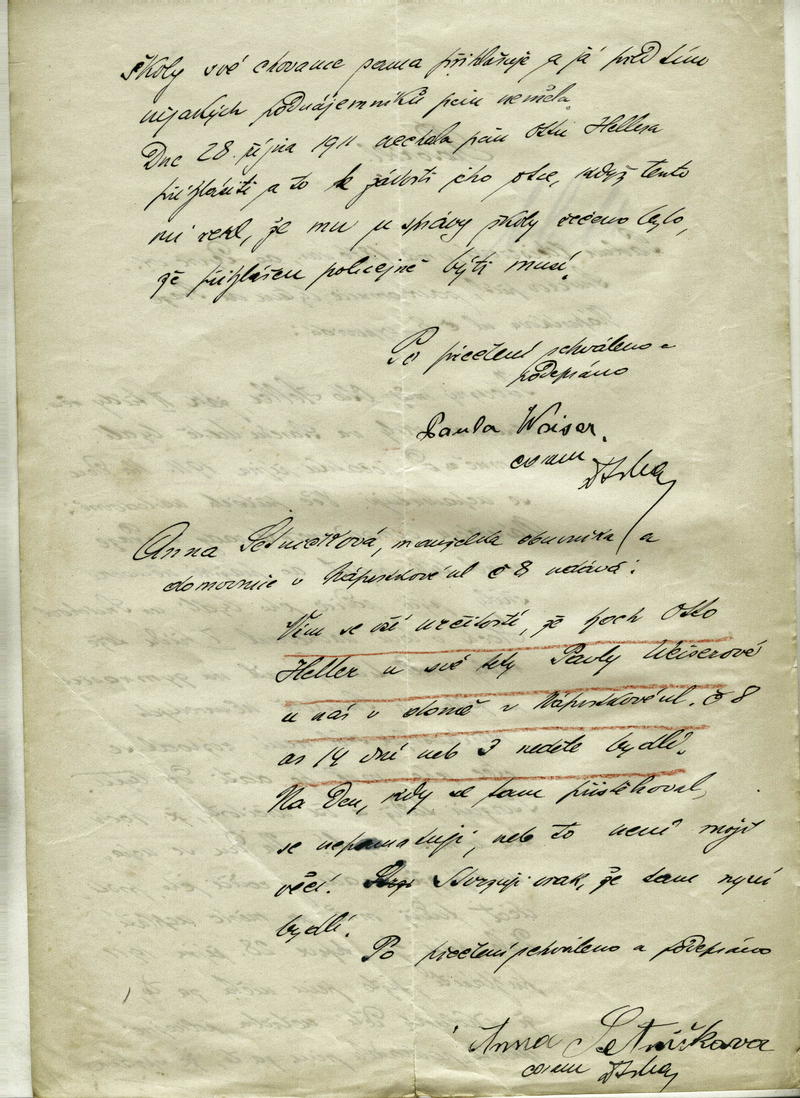 školy své chovance sama přihlašuje a já před tím
nijakých podnájemníků jsem neměla.
Dne 28. října 1911 nechala jsem Ottu Hellera
přihlásiti a to k žádosti jeho otce, když tento
mi řekl, že mu u správy školy řečeno bylo,
že přihlášen policejně býti musí.
Po přečtení schváleno a
podepsáno
Paula Weiser.
coram
Anna Setničková, manželka obuvníka a
domovnice v Náprstkově ul č 8 udává:
Vím se vší určitostí, že hoch Otto
Heller u své tety Pavly Weiserové
u nás v domě v Náprstkově ul. č 8
as 14 dní neb 3 neděle bydlí.
Na den, kdy se tam přistěhoval,
se nepamatuji, neb to není mojí
věcí. Stvrzuji však, že tam nyní
bydlí.
Po přečtení schváleno a podepsáno
Anna Setničkova
coram